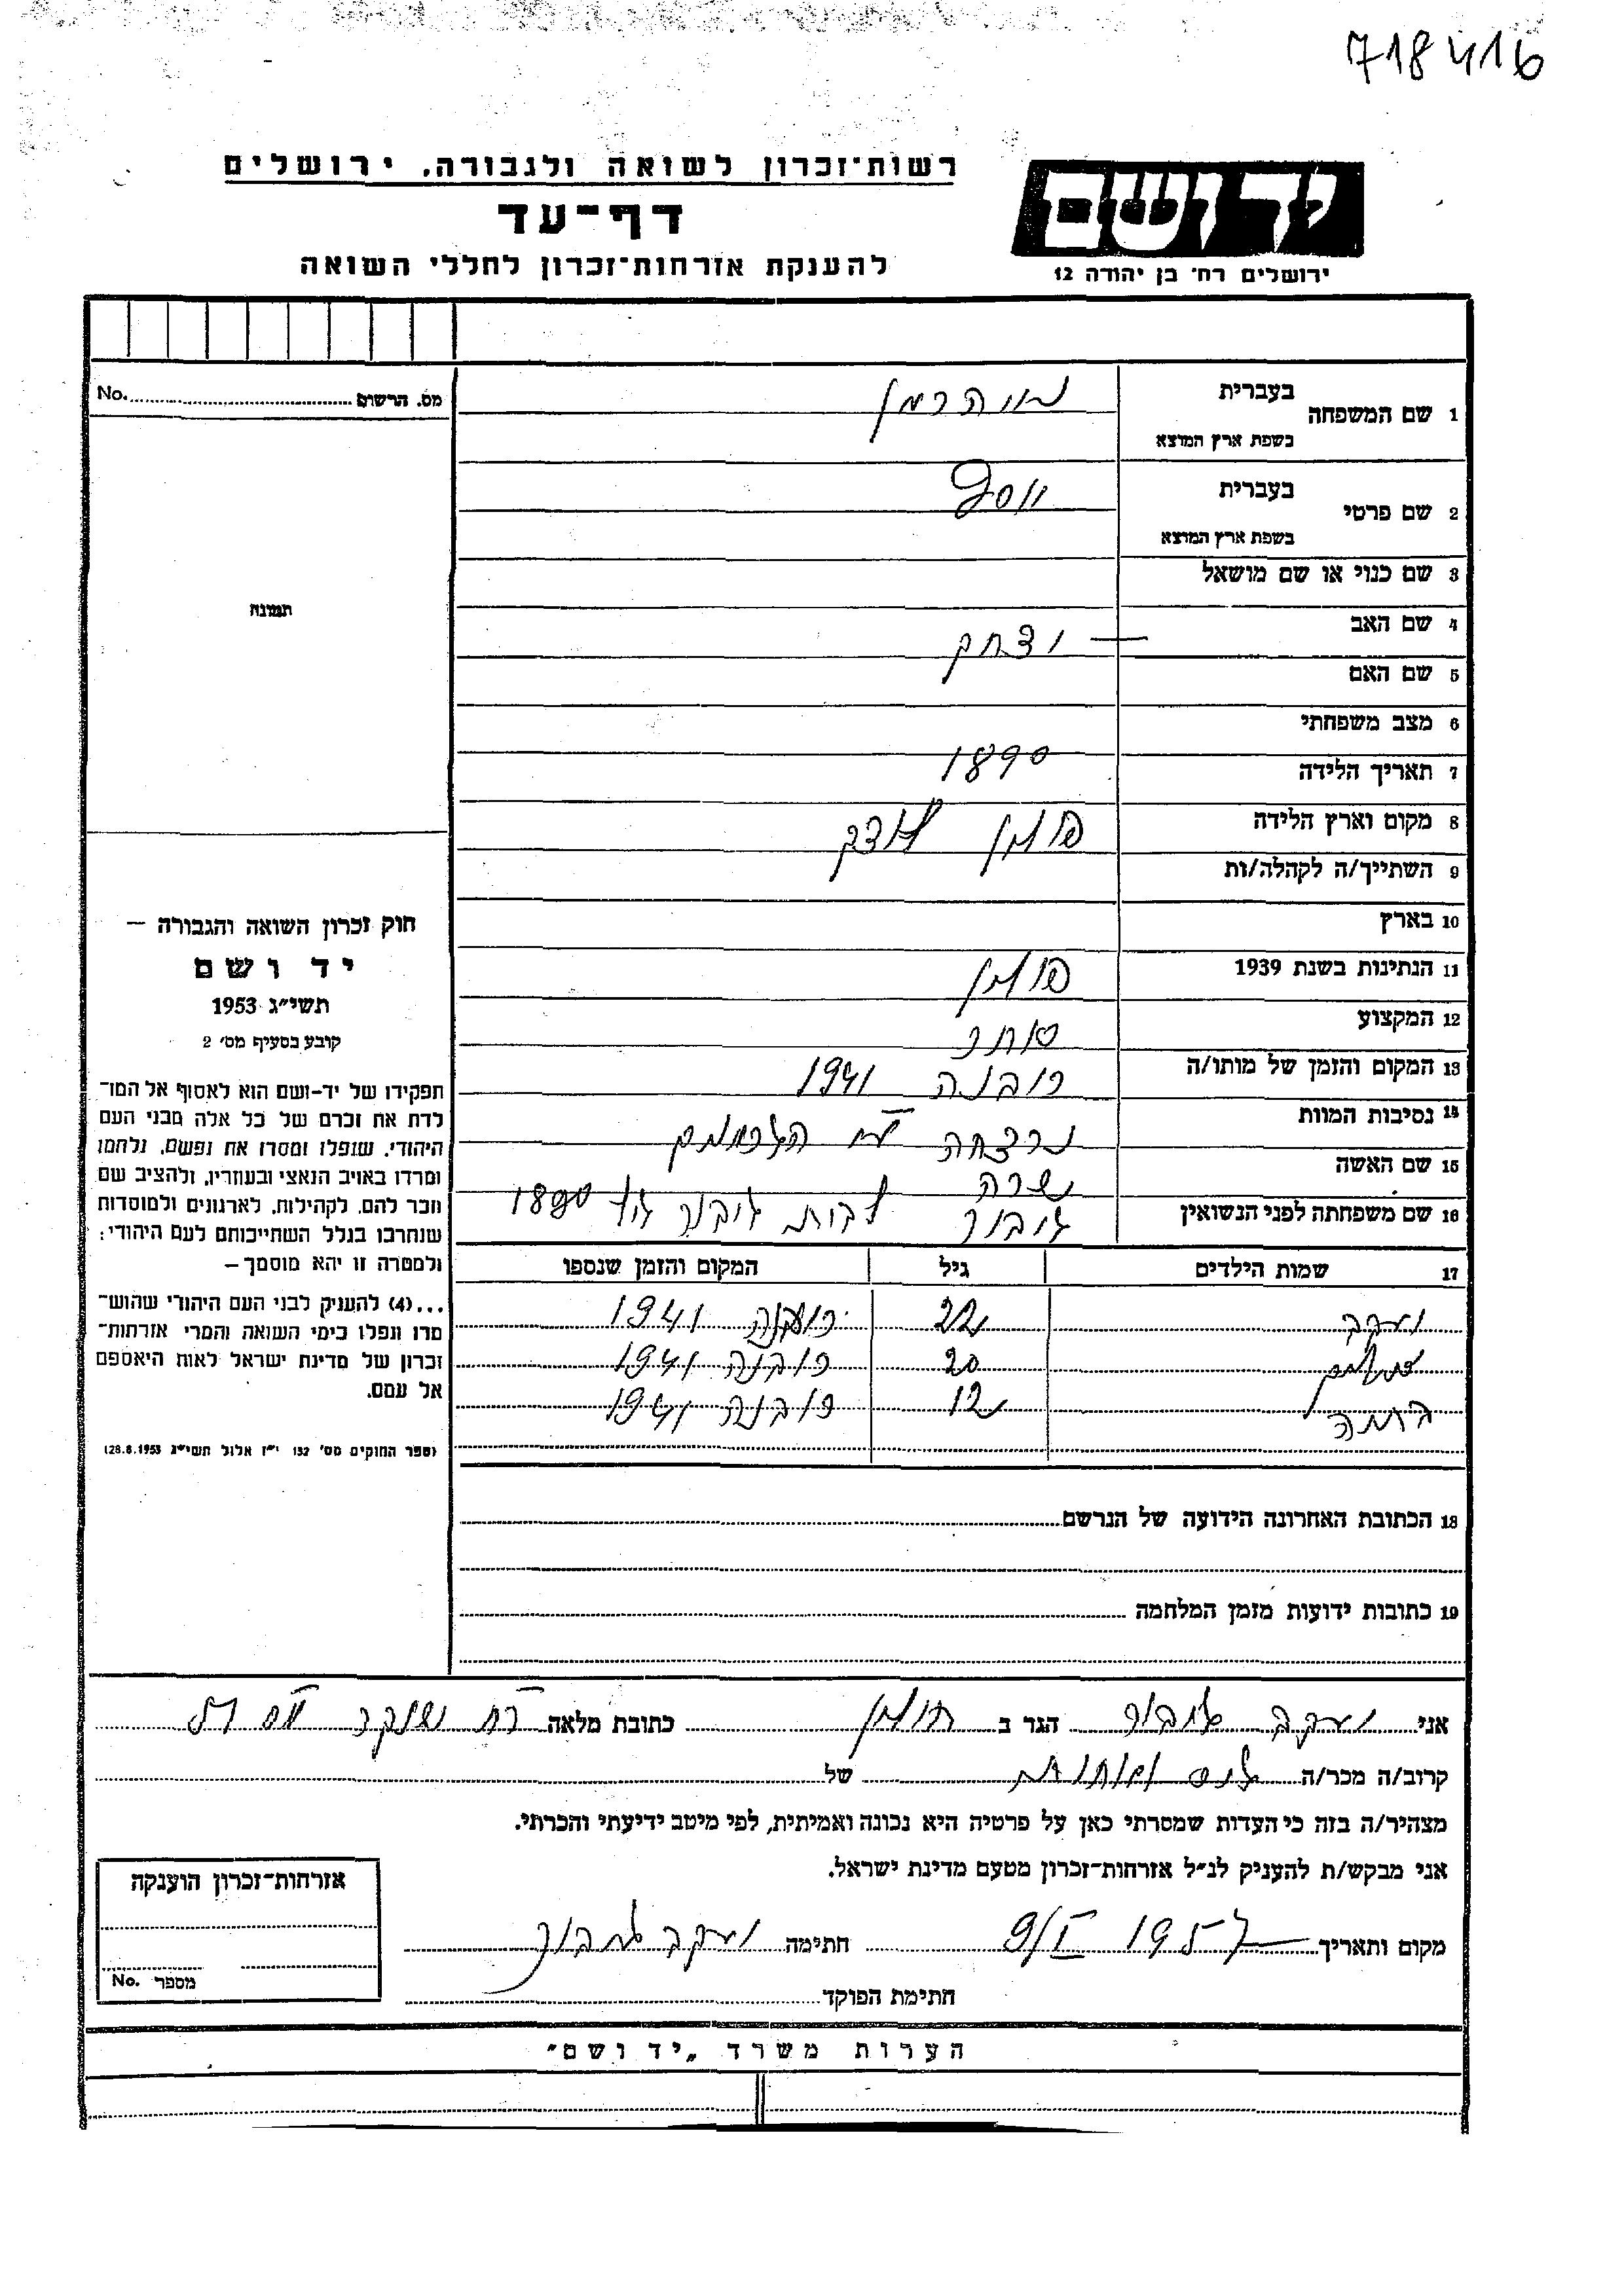 718416
רשות־זכרון לשואה ולגבורה, ירושלים
דף־עד
להענקת אזרחות־זכרון לחללי השואה
יד ושם
ירושלים רח' בן יהודה 12
מס. הרשום No.
תמונה
חוק זכרון השואה והגבורה —
יד ושם
תשי״ג 1953
קובע בסעיף מס׳ 2
תפקידו של יד-ושם הוא לאסוף אל המו־
לדת את זכרם של כל אלה מבני העם
היהודי, שנפלו ומסרו את נפשם, נלחמו
ומרדו באויב הנאצי ובעוזריו, ולהציב שם
וזכר להם, לקהילות, לארגונים ולמוסדות
שנחרבו בגלל השתייכותם לעם היהודי;
ולמטרה זו יהא מוסמך —
...(4) להעניק לבני העם היהודי שהוש־
מדו ונפלו בימי השואה והמרי אזרחות־
זכרון של מדינת ישראל לאות היאספם
אל עמם.
(ספר החוקים מס׳ 132 י״ז אלול תשי״ג 28.8.1953)
1 שם המשפחה בעברית
בשפת ארץ המוצא
2 שם פרטי בעברית יוסף
בשפת ארץ המוצא
3 שם כנוי או שם מושאל
4 שם האב — יצחק
5 שם האם
6 מצב משפחתי
7 תאריך הלידה 1890
8 מקום וארץ הלידה פולין
9 השתייך/ה לקהלה/ות
10 בארץ
11 הנתינות בשנת 1939 פולין
12 המקצוע סוחר
13 המקום והזמן של מותו/ה רובנה 1941
14 נסיבות המוות נרצחה ע״י הגרמנים
15 שם האשה שרה
16 שם משפחתה לפני הנשואין 1890
17 שמות הילדים גיל המקום והזמן שנספו
יעקב 22 רובנה 1941
20 רובנה 1941
12 רובנה 1941
18 הכתובת האחרונה הידועה של הנרשם
19 כתובות ידועות מזמן המלחמה
אני יעקב הגר ב חולון כתובת מלאה רח׳
קרוב/ה מכר/ה של
מצהיר/ה בזה כי העדות שמסרתי כאן על פרטיה היא נכונה ואמיתית, לפי מיטב ידיעתי והכרתי.
אני מבקש/ת להעניק לנ״ל אזרחות־זכרון מטעם מדינת ישראל.
מקום ותאריך 1957 9/I חתימה יעקב
חתימת הפוקד
אזרחות־זכרון הוענקה
מספר No.
הערות משרד „יד ושם״